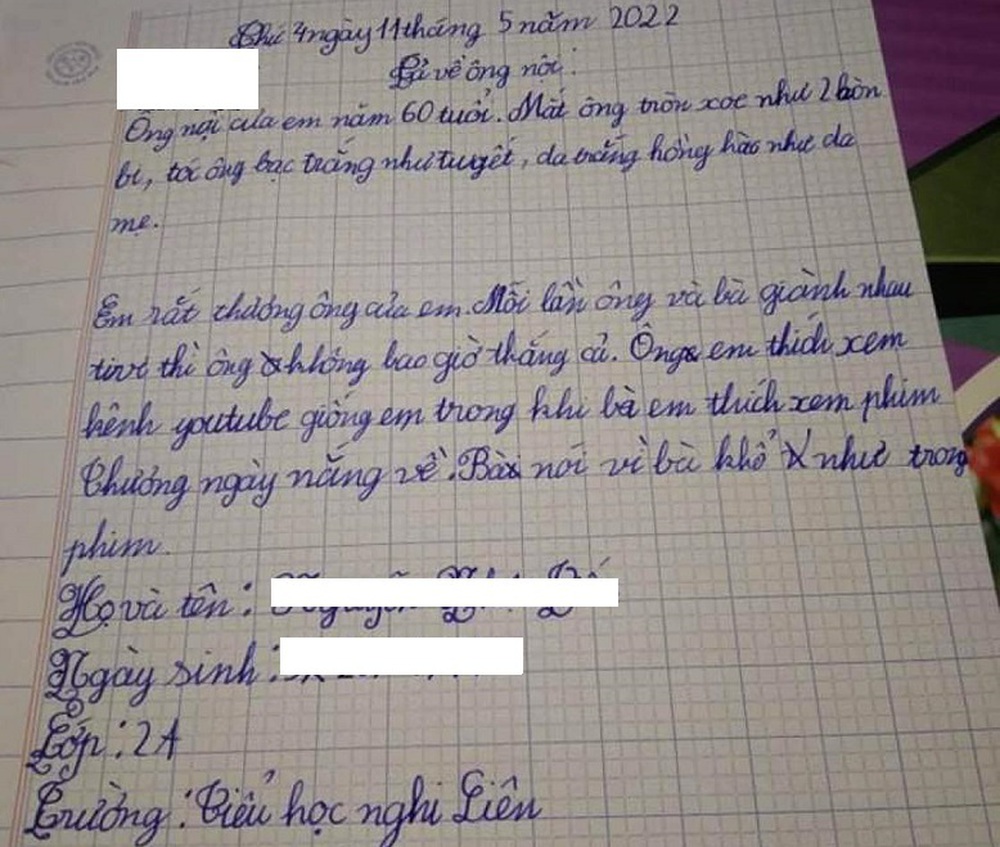 Thứ 4 ngày 11 tháng 5 năm 2022
Tả về ông nội:
Ông nội của em năm 60 tuổi. Mắt ông tròn xoe như 2 hòn
bi, tóc ông bạc trắng như tuyết, da trắng hồng hào như da
mẹ.
Em rất thương ông của em. Mỗi lần ông và bà giành nhau
tivi thì ông không bao giờ thắng cả. Ông em thích xem
kênh youtube giống em trong khi bà em thích xem phim
Thương ngày nắng về. Bà nói vì bà khổ như trong
phim.
Họ và tên:
Ngày sinh:
Lớp: 2A
Trường: Tiểu học nghi Liên